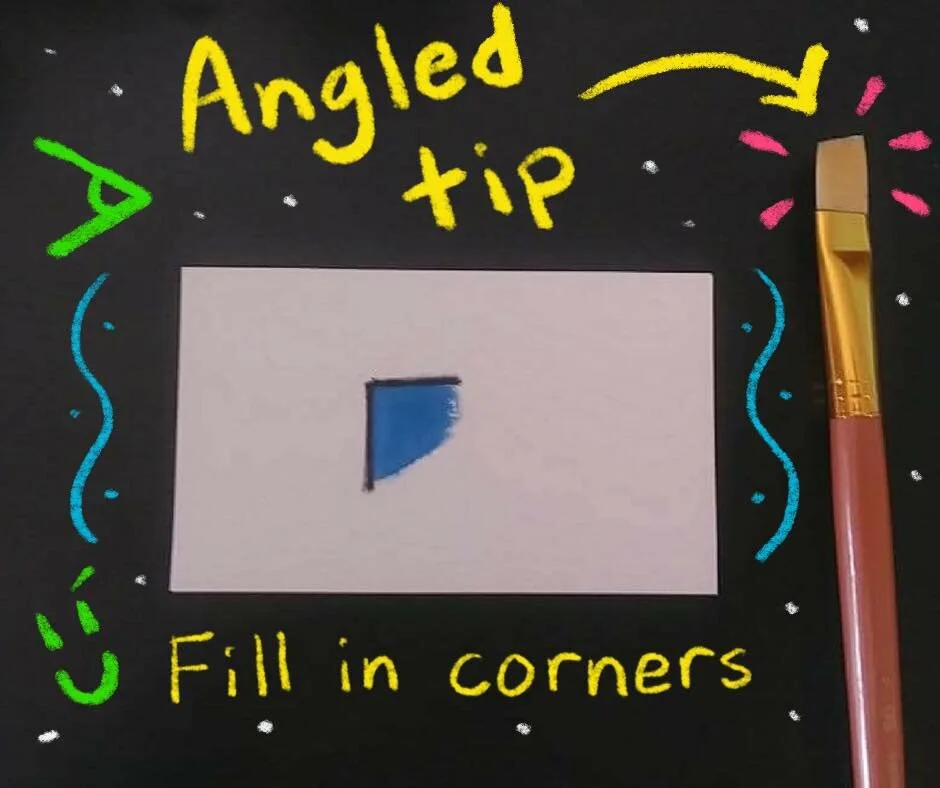 Angled
tip
Fill in corners